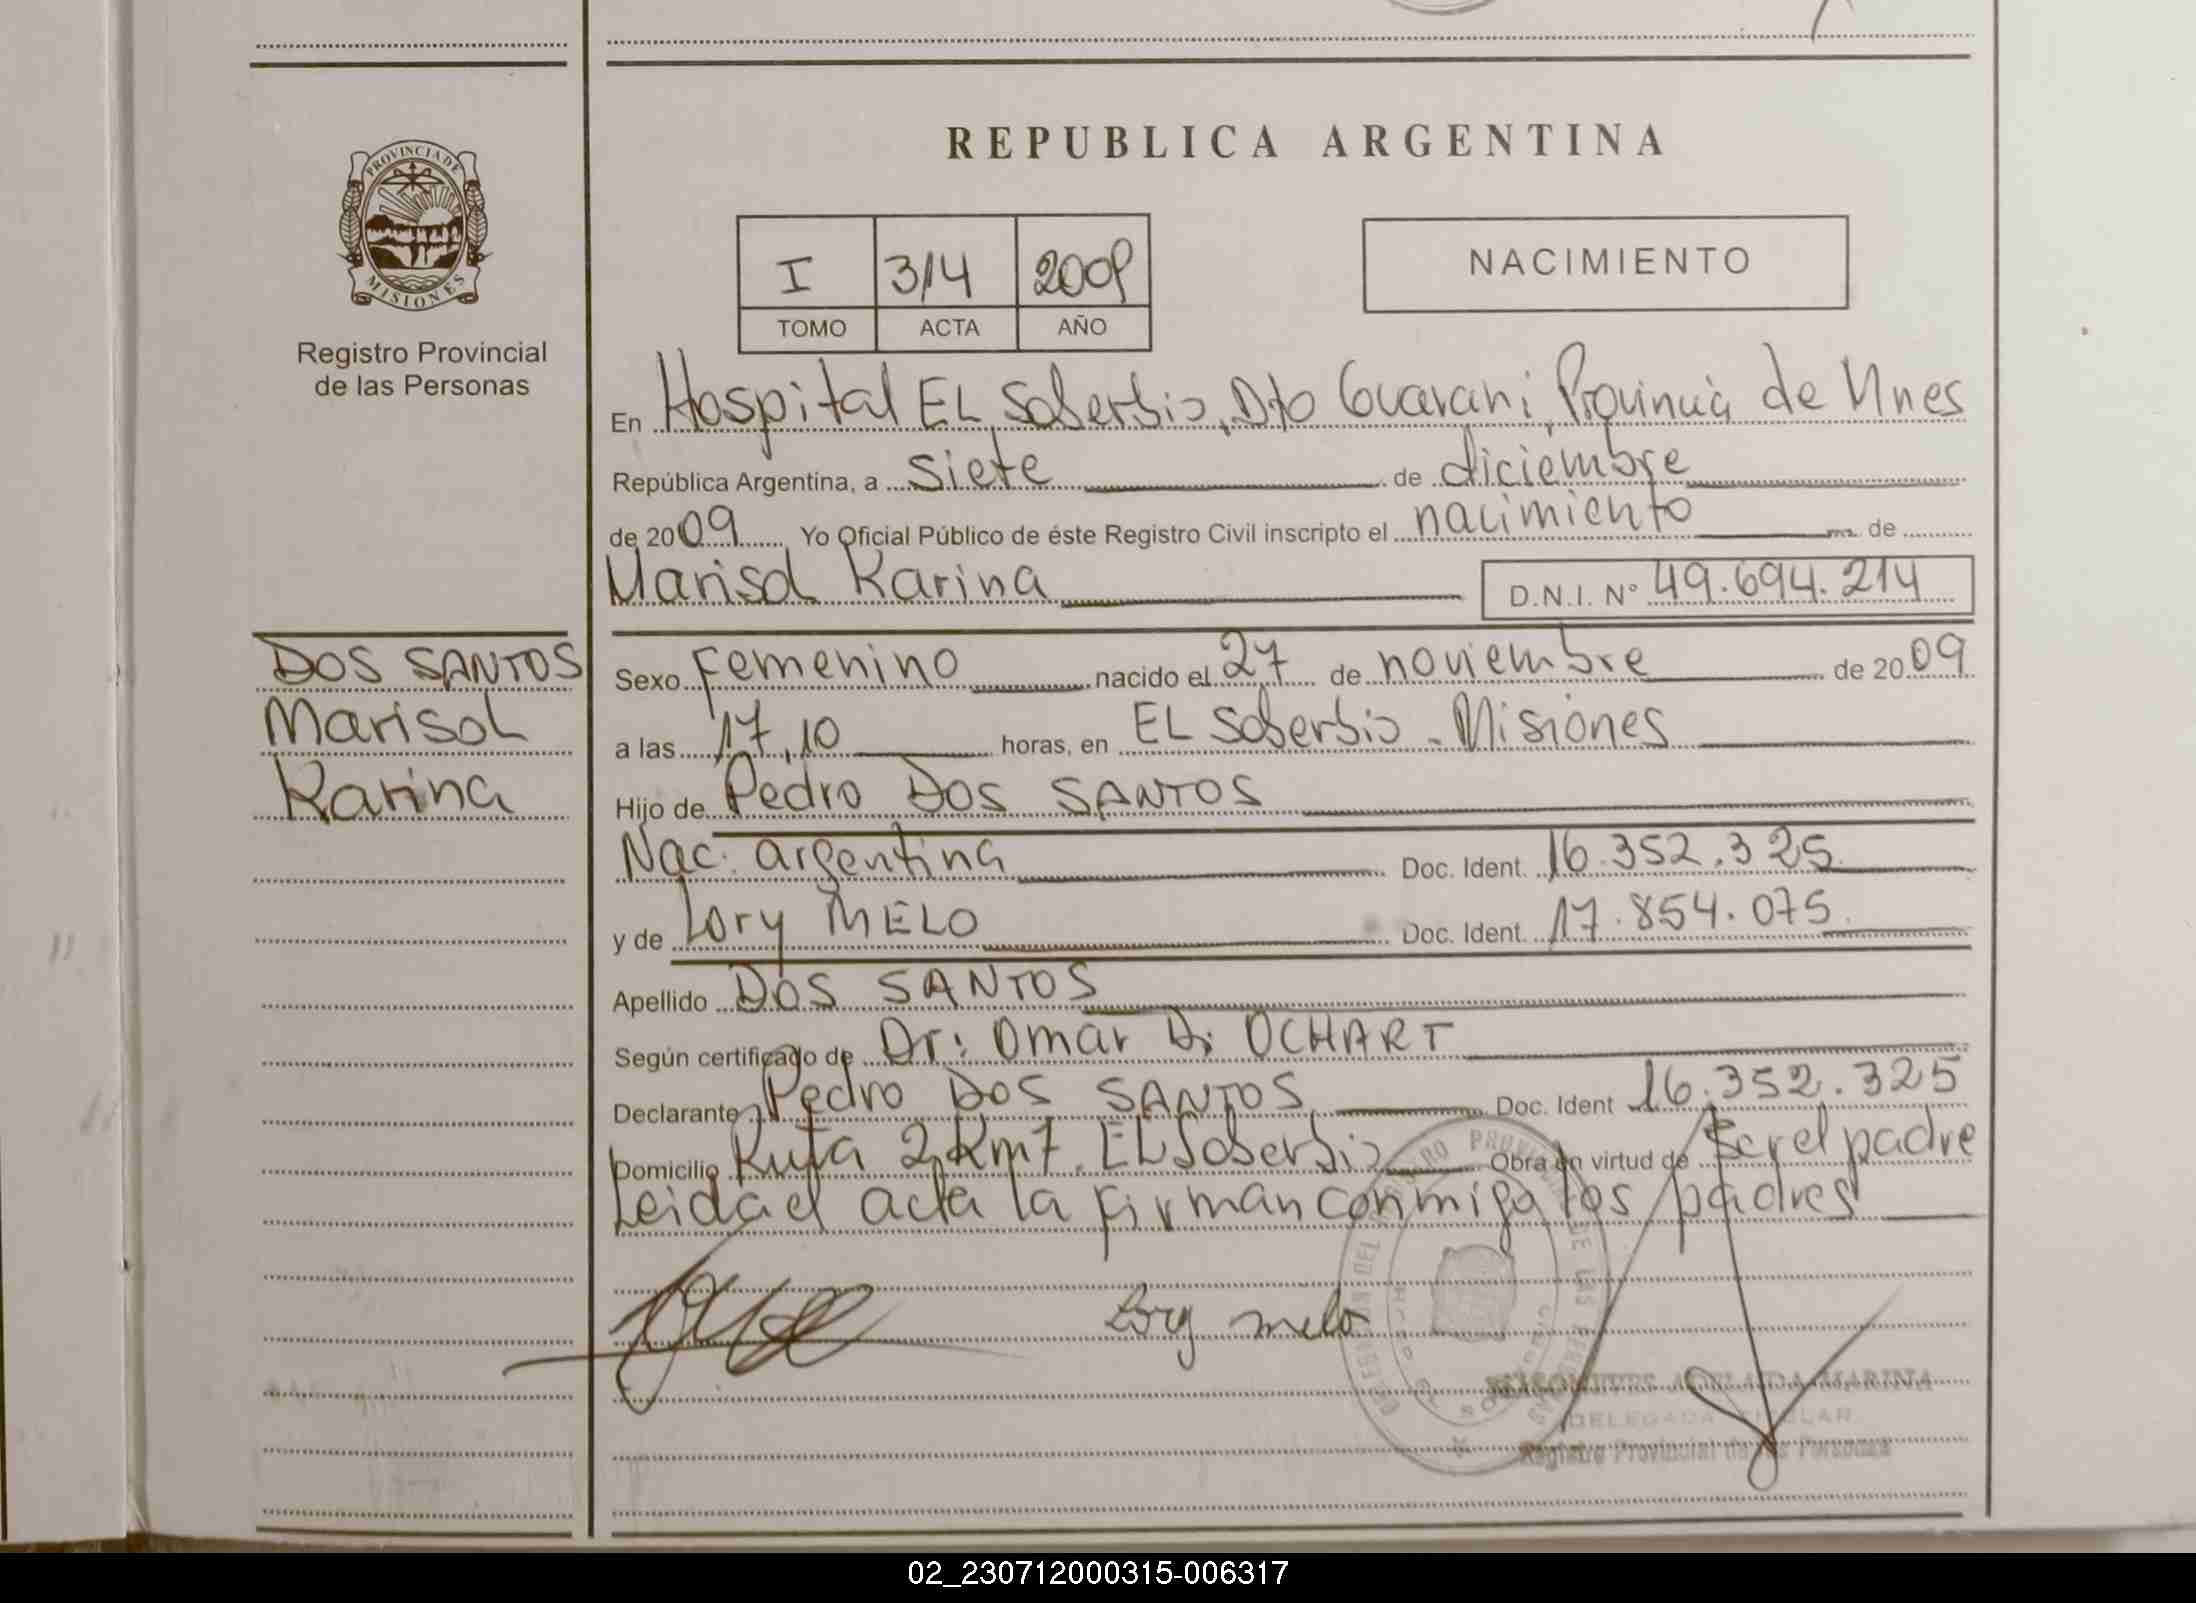 REPUBLICA ARGENTINA
PROVINCIA DE
MISIONES
Registro Provincial
de las Personas
I 314 2009
TOMO ACTA AÑO
NACIMIENTO
En Hospital EL Soberbio, Dto Guarani, Provincia de Mnes
República Argentina, a siete de diciembre
de 2009 Yo Oficial Público de éste Registro Civil inscripto el nacimiento de
Marisol Karina D.N.I. Nº 49.694.214
DOS SANTOS
Marisol
Karina
Sexo Femenino nacido el 27 de noviembre de 2009
a las 17,10 horas, en EL Soberbio - Misiones
Hijo de Pedro DOS SANTOS
Nac. argentina Doc. Ident. 16.352.325
y de Lory MELO Doc. Ident. 17.854.075
Apellido DOS SANTOS
Según certificado de Dr: Omar D: OCHART
Declarante Pedro DOS SANTOS Doc. Ident 16.352.325
Domicilio Ruta 2 Km7. EL Soberbio Obra en virtud de ser el padre
Leida el acta la firman conmigo los padres
Lory melo
ADELAIDA MARINA
DELEGADA TITULAR
Registro Provincial de las Personas
02_230712000315-006317